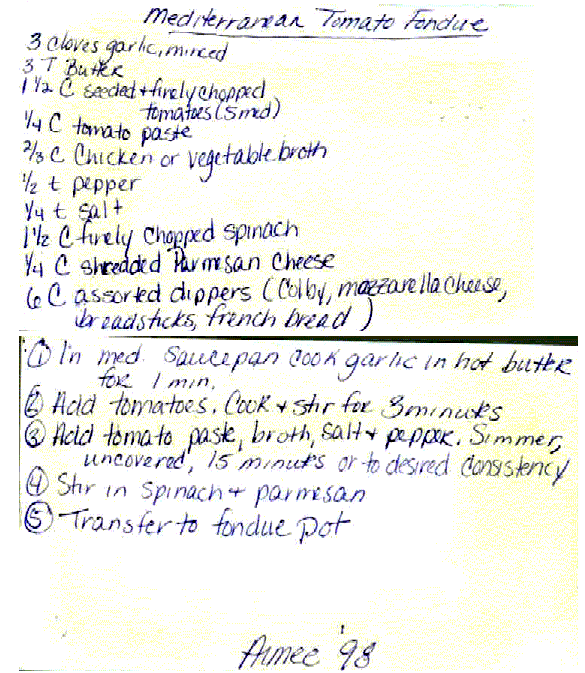 Mediterranean Tomato Fondue
3 cloves garlic, minced
3 T Butter
1 1/2 C seeded + finely chopped
tomatoes (5 med)
1/4 C tomato paste
2/3 C Chicken or vegetable broth
1/2 t pepper
1/4 t salt
1 1/2 C finely chopped spinach
1/4 C shredded Parmesan Cheese
6 C assorted dippers (Colby, mozzarella cheese,
breadsticks, french bread)
① In med. saucepan cook garlic in hot butter
for 1 min.
② Add tomatoes. Cook + stir for 3 minutes
③ Add tomato paste, broth, salt + pepper. Simmer,
uncovered, 15 minutes or to desired consistency
④ Stir in spinach + parmesan
⑤ Transfer to fondue pot
Aimee '98